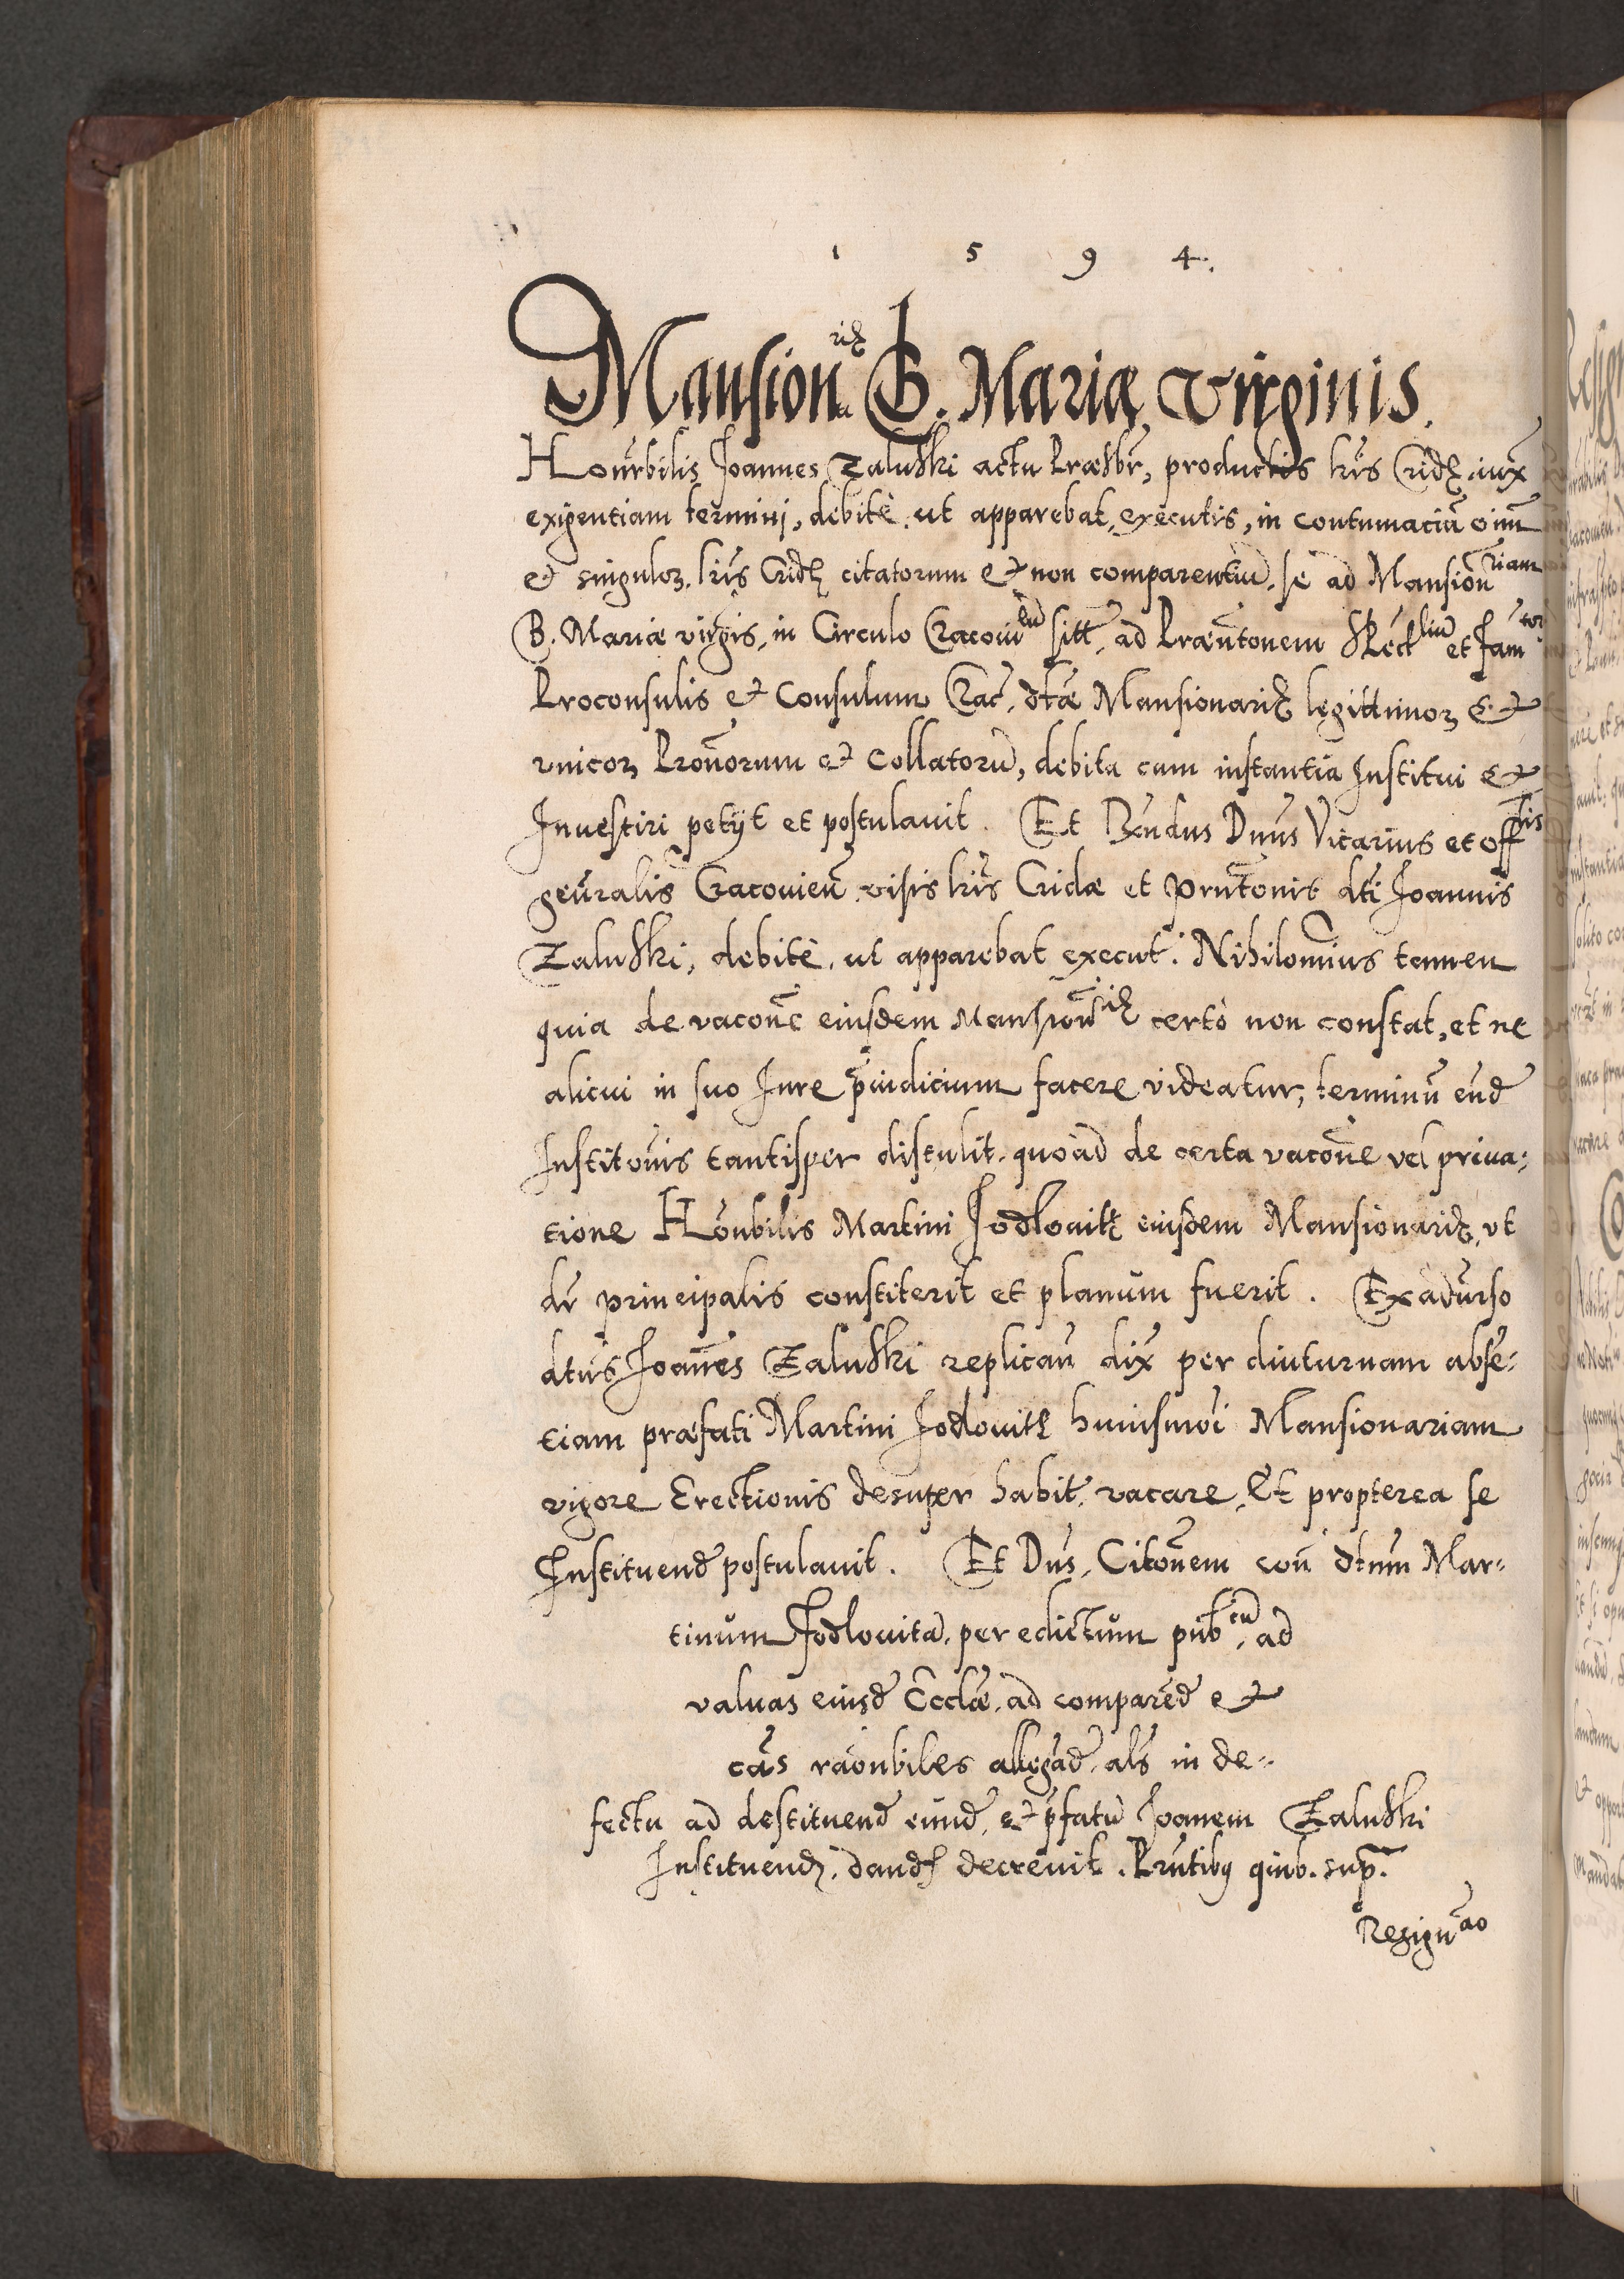 1 5 9 4.
Mansionriæ B. Mariæ Virginis.
Honrbilis Joannes Zaluski actu Præsbr, productis lris Cridæ iux
exigentiam termini, debite, ut apparebat, executis, in contumaciã oĩm
et singuloꝝ lris Cridæ citatorum et non comparentiũ, se ad Mansionriam
B. Mariæ virgis, in Circulo Cracouieñ sitt, ad Præntonem Spectliũ et Fam
Proconsulis et Consulum Crac, dtæ Mansionariæ legittimoꝝ et
vnicoꝝ Pronorum et Collatorũ, debita cum instantia Institui et
Inuestiri petijt et postulauit. Et Rñdus Dnus Vicarius et offlis
geñralis Cracouieñ visis lris Cridæ et prntonis dti Joannis
Zaluski, debite, ut apparebat execut. Nihilominus tamen
quia de vacone eiusdem Mansionriæ certo non constat, et ne
alicui in suo Jure p̃iudicium facere videatur, terminũ eund
Institonis tantisper distulit, quoad de certa vacone vel priua-
tione Honrbilis Martini Jodlouitæ eiusdem Mansionariæ, vt
dr principalis constiterit et planum fuerit. Ex aduerso
dtus Joañes Zaluski replicañ dix per diuturnam abse-
tiam præfati Martini Jodlouitæ huiusmoi Mansionariam
vigore Erectionis desuper habit, vacare, Et propterea se
Instituend postulauit. Et Dñs, Citonem coñ dtum Mar-
tinum Jodlouitã, per edictum pubcũ, ad
valuas eiusd Ecclæ, ad comparend et
cãs raonbiles allegad, als in de-
fectu ad destituend eund, et p̃fatũ Joanem Zaluski
Instituend, dand decreuit. Prntibꝯ quib. supr.
Resignao